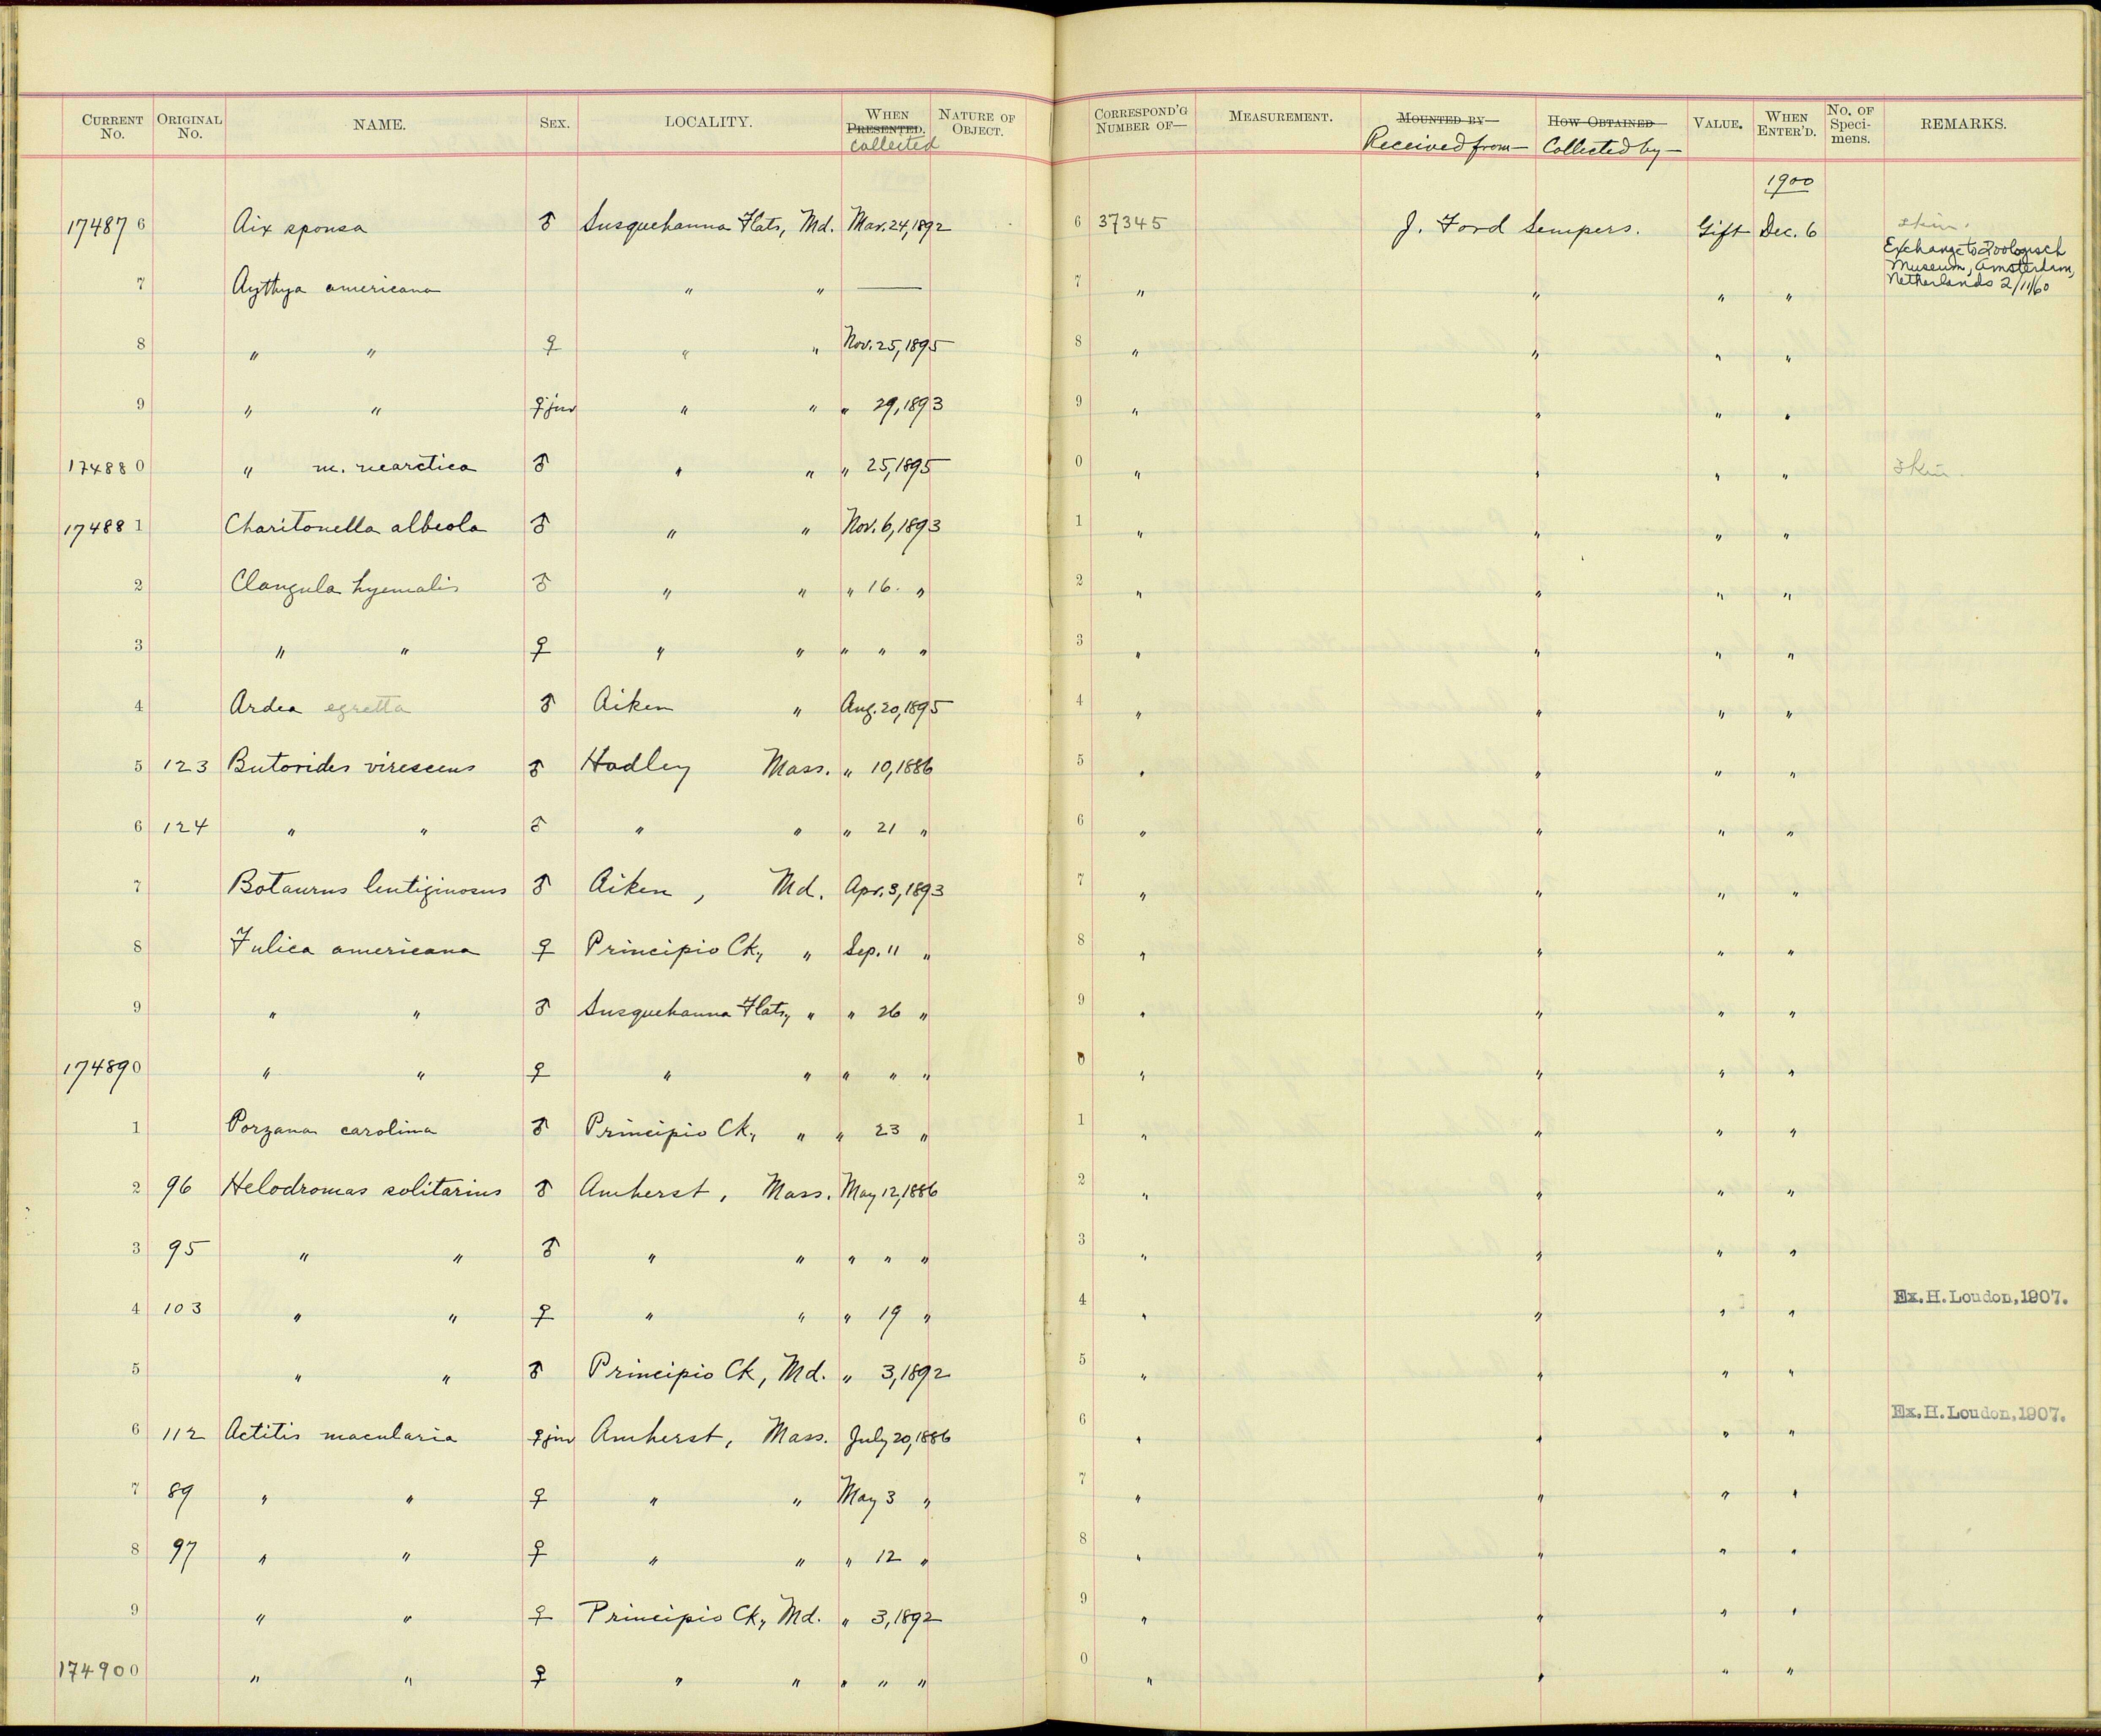 CURRENT No. ORIGINAL No. NAME. SEX. LOCALITY. WHEN PRESENTED. collected NATURE OF OBJECT. CORRESPOND'G NUMBER OF— MEASUREMENT. MOUNTED BY— Received from— HOW OBTAINED Collected by— VALUE. WHEN ENTER'D. No. OF Speci- mens. REMARKS.
1900
17487 6 Aix sponsa ♂ Susquehanna Flats, Md. Mar. 24, 1892 6 37345 J. Ford Sempers. Gift Dec. 6 skin.
Exchange to Zoologisch
Museum, Amsterdam,
Netherlands 2/11/60
7 Aythya americana " " — 7 " " " "
8 " " ♀ " " Nov. 25, 1895 8 " " " "
9 " " ♀ juv " " " 29, 1893 9 " " " "
17488 0 " m. nearctica ♂ " " " 25, 1895 0 " " " " Skin.
17488 1 Charitonella albeola ♂ " " Nov. 6, 1893 1 " " " "
2 Clangula hyemalis ♂ " " " 16. " 2 " " " "
3 " " ♀ " " " " " 3 " " " "
4 Ardea egretta ♂ Aiken " Aug. 20, 1895 4 " " " "
5 123 Butorides virescens ♂ Hadley Mass. " 10, 1886 5 " " " "
6 124 " " ♂ " " " 21 " 6 " " " "
7 Botaurus lentiginosus ♂ Aiken , Md. Apr. 3, 1893 7 " " " "
8 Fulica americana ♀ Principio Ck, " Sep. 11 " 8 " " " "
9 " " ♂ Susquehanna Flats, " " 26 " 9 " " " "
17489 0 " " ♀ " " " " " 0 " " " "
1 Porzana carolina ♂ Principio Ck, " " 23 " 1 " " " "
2 96 Helodromas solitarius ♂ Amherst, Mass. May 12, 1886 2 " " " "
3 95 " " ♂ " " " " " 3 " " " "
4 103 " " ♀ " " " 19 " 4 " " " " Ex. H. Loudon, 1907.
5 " " ♂ Principio Ck, Md. " 3, 1892 5 " " " "
6 112 Actitis macularia ♀ juv Amherst, Mass. July 20, 1886 6 " " " " Ex. H. Loudon, 1907.
7 89 " " ♀ " " May 3 " 7 " " " "
8 97 " " ♀ " " " 12 " 8 " " " "
9 " " ♀ Principio Ck, Md. " 3, 1892 9 " " " "
17490 0 " " ♀ " " " " " 0 " " " "